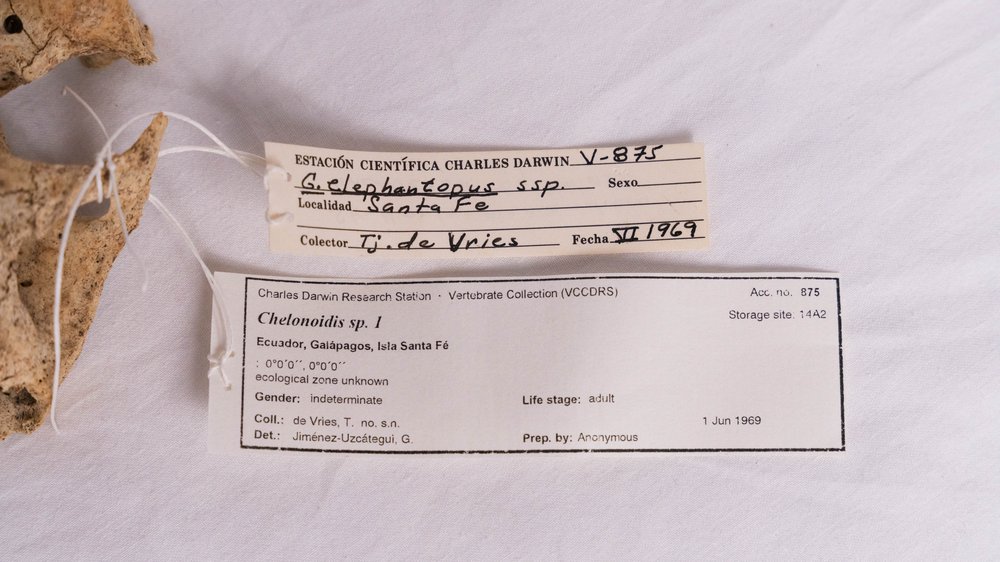 ESTACIÓN CIENTÍFICA CHARLES DARWIN V-875
G. elephantopus ssp. Sexo
Localidad Santa Fe
Colector Tj. de Vries Fecha VI 1969
Charles Darwin Research Station · Vertebrate Collection (VCCDRS) Acc. no. 875
Chelonoidis sp. 1 Storage site: 14A2
Ecuador, Galápagos, Isla Santa Fé
: 0°0'0´´, 0°0'0´´
ecological zone unknown
Gender: indeterminate Life stage: adult
Coll.: de Vries, T. no. s.n. 1 Jun 1969
Det.: Jiménez-Uzcátegui, G. Prep. by: Anonymous